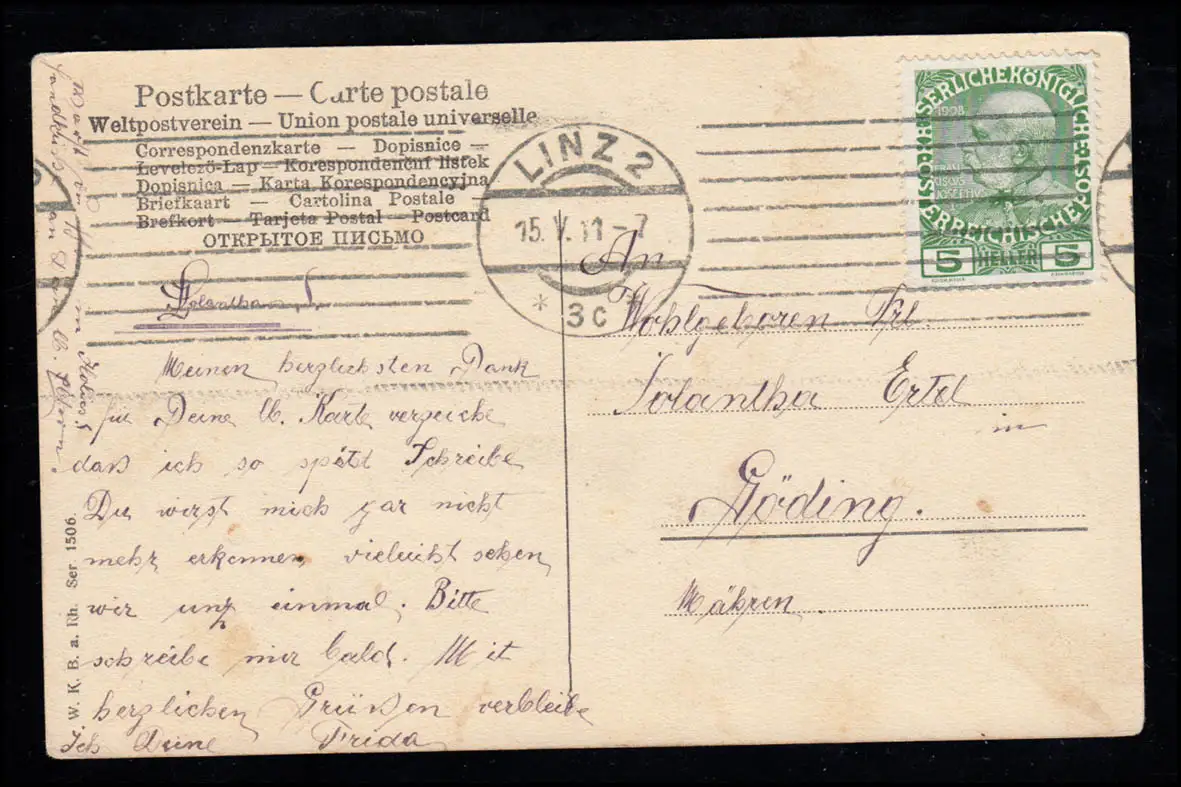 Postkarte — Carte postale
Weltpostverein — Union postale universelle
Correspondenzkarte — Dopisnice —
Levelező-Lap — Korespondenční lístek
Dopisnica — Karta Korespondencyjna
Briefkaart — Cartolina Postale —
Brefkort — Tarjeta Postal — Postcard
ОТКРЫТОЕ ПИСЬМО
LINZ 2
15. V. 11 - 7
* 3c *
KAISERLICHE KÖNIGLICHE ÖSTERREICHISCHE POST
1908
5 HELLER 5
Jolantha
Meinen herzlichsten Dank
für Deine lb. Karte verzeiche
daß ich so spätd Schreibe
Du wirst mich gar nicht
mehr erkennen vieleicht sehen
wir unß einmal. Bitte
schreibe mir bald. Mit
herzlichen Grüßen verbleibe
Ich Deine Frida
An
Wohlgeboren Frl.
Jolantha Ertel
in
Göding.
Mähren.
W. K. B. a. Rh. Ser 1506.